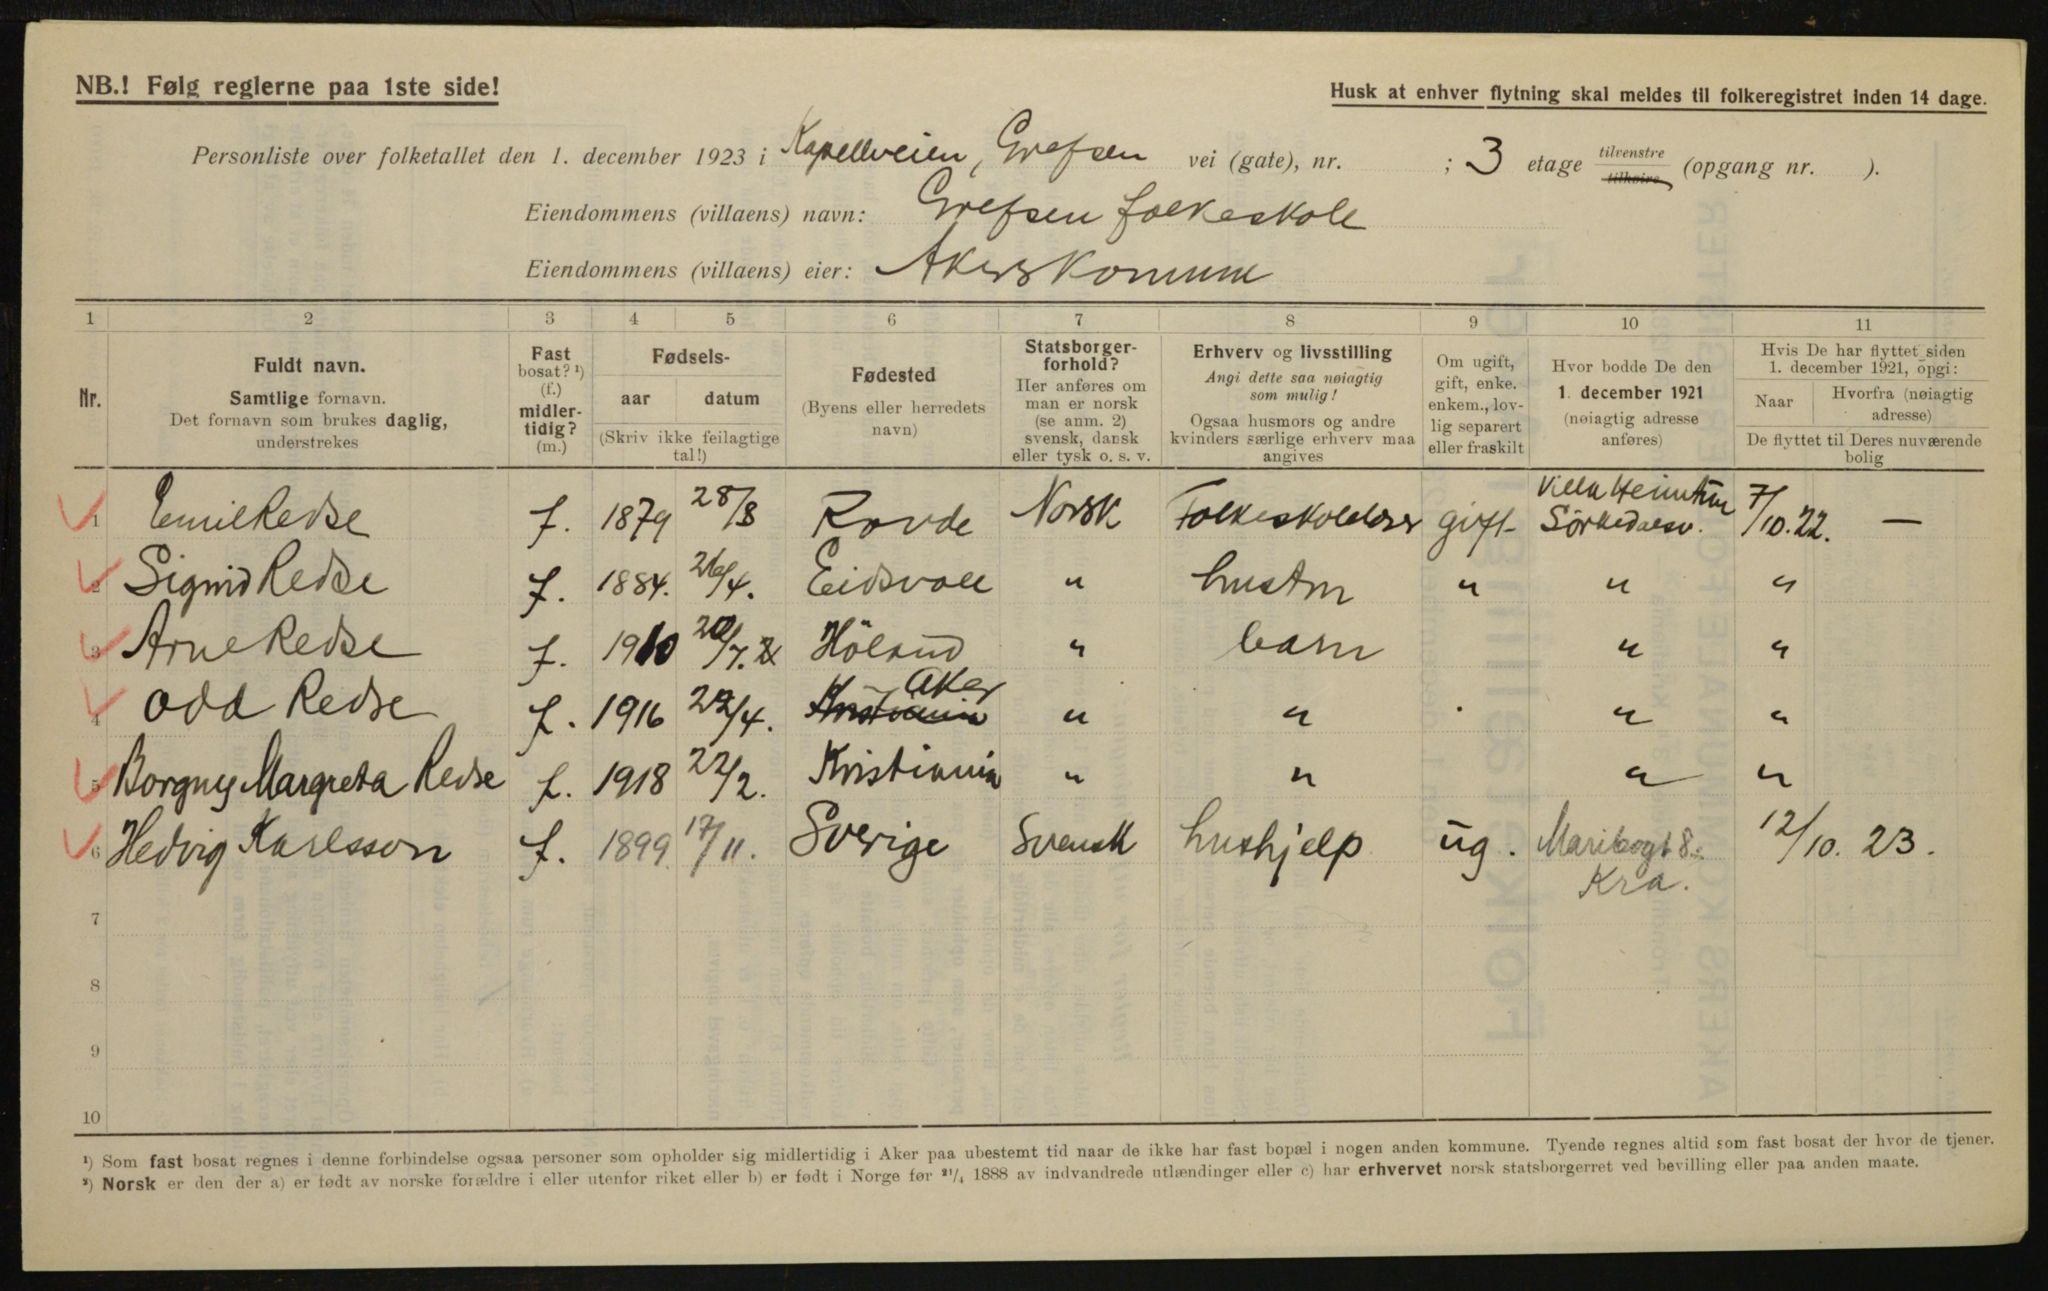 NB.! Følg reglerne paa 1ste side!
Husk at enhver flytning skal meldes til folkeregistret inden 14 dage.
Personliste over folketallet den 1. december 1923 i Kapellveien, Grefsen vei (gate), nr. ; 3 etage tilvenstre tilhøire (opgang nr. ).
Eiendommens (villaens) navn: Grefsen folkeskole
Eiendommens (villaens) eier: Akers Komune
1 2 3 4 5 6 7 8 9 10 11
Nr.
Fuldt navn.
Samtlige fornavn.
Det fornavn som brukes daglig,
understrekes
Fast
bosat? ¹)
(f.)
midler-
tidig?
(m.)
Fødsels-
aar datum
(Skriv ikke feilagtige
tal!)
Fødested
(Byens eller herredets
navn)
Statsborger-
forhold?
Her anføres om
man er norsk
(se anm. 2)
svensk, dansk
eller tysk o. s. v.
Erhverv og livsstilling
Angi dette saa nøiagtig
som mulig!
Ogsaa husmors og andre
kvinders særlige erhverv maa
angives
Om ugift,
gift, enke.
enkem., lov-
lig separert
eller fraskilt
Hvor bodde De den
1. december 1921
(nøiagtig adresse
anføres)
Hvis De har flyttet siden
1. december 1921, opgi:
Naar
Hvorfra (nøiagtig
adresse)
De flyttet til Deres nuværende
bolig
1 Emil Redse f. 1879 28/8 Rovde Norsk Folkeskolelærer gift Villa Heimtun Sörkedalsv. 7/10.22. —
2 Sigrid Redse f. 1884. 26/4. Eidsvoll " hustru " " "
3 Arne Redse f. 1910 20/7. Höland " barn " "
4 Odd Redse f. 1916 22/4. Kristiania Aker " " " "
5 Borgny Margreta Redse f. 1918 22/2. Kristiania " " " "
6 Hedvig Karlsson f. 1899 17/11. Sverige Svensk hushjelp ug. Maribogt 8. Kra. 12/10. 23.
7
8
9
10
¹) Som fast bosat regnes i denne forbindelse ogsaa personer som opholder sig midlertidig i Aker paa ubestemt tid naar de ikke har fast bopæl i nogen anden kommune. Tyende regnes altid som fast bosat der hvor de tjener.
²) Norsk er den der a) er født av norske forældre i eller utenfor riket eller b) er født i Norge før ²¹/₄ 1888 av indvandrede utlændinger eller c) har erhvervet norsk statsborgerret ved bevilling eller paa anden maate.